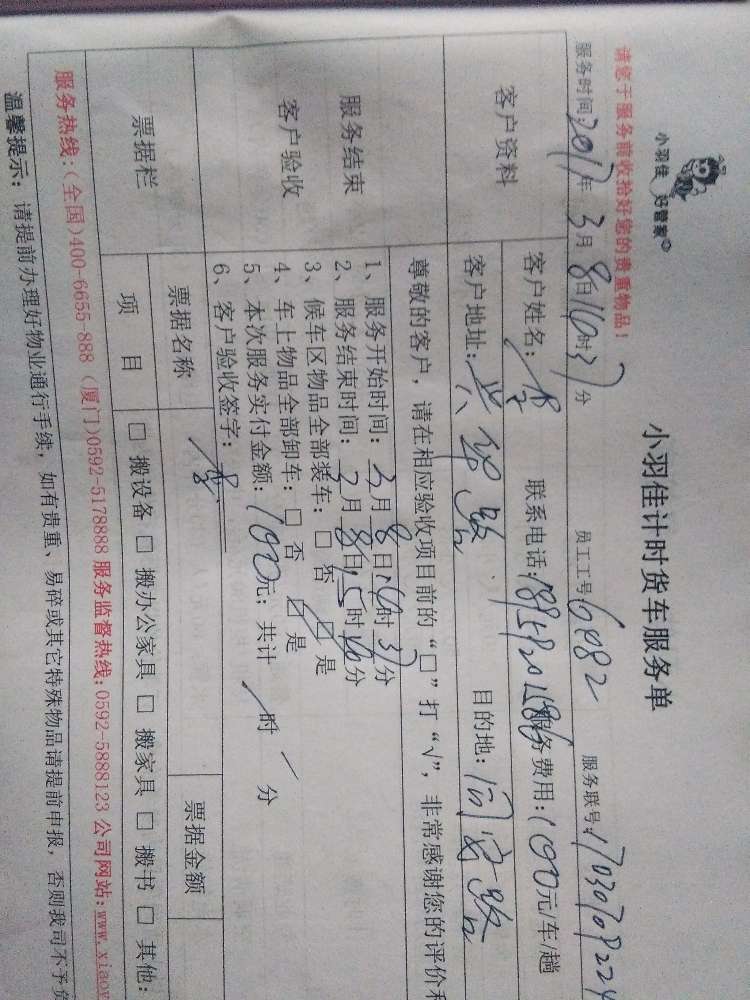 小羽佳 好管家
小羽佳计时货车服务单
请您于服务前收拾好您的贵重物品！
服务时间：2017年3月8日 时 分 员工工号：6082 服务联号：
客户资料
客户姓名： 联系电话： 服务费用：100元/车/趟
客户地址： 目的地：
尊敬的客户，请在相应验收项目前的“□”打“√”，非常感谢您的评价和
服务结束
客户验收
1、服务开始时间：3月8日 时 分
2、服务结束时间：3月8日15时 分
3、候车区物品全部装车：□ 否 □ 是
4、车上物品全部卸车：□ 否 □ 是
5、本次服务实付金额：100元；共计 时 分
6、客户验收签字：
票据栏
票据名称 票据金额
项 目 □ 搬设备 □ 搬办公家具 □ 搬家具 □ 搬书 □ 其他：
服务热线：（全国）400-6655-888（厦门）0592-5178888 服务监督热线：0592-5888123 公司网站：www.xiaoy
温馨提示：请提前办理好物业通行手续，如有贵重、易碎或其它特殊物品请提前申报，否则我司不予